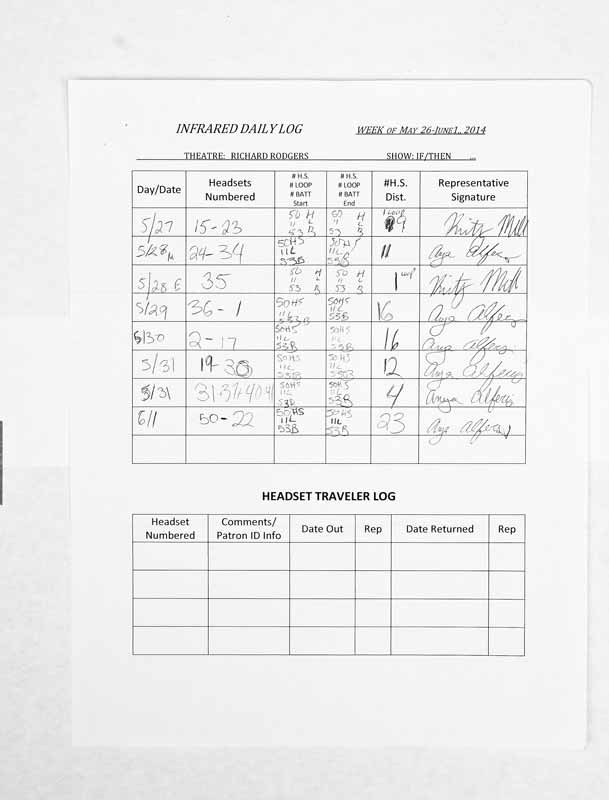 INFRARED DAILY LOG WEEK OF MAY 26-JUNE1,, 2014
THEATRE: RICHARD RODGERS SHOW: IF/THEN ...
Day/Date Headsets Numbered # H.S. # LOOP # BATT Start # H.S. # LOOP # BATT End #H.S. Dist. Representative Signature
5/27 15-23 50 H 11 L 53 B 50 H 11 L 53 B 1 LOOP 9
5/28 M 24-34 50HS 11L 53B 50HS 11L 53B 11 Anya Alfers
5/28 E 35 50 H 11 L 53 B 50 H 11 L 53 B 1 loop
5/29 36-1 50HS 11L 53B 50HS 11L 53B 16 Anya Alfers
5/30 2-17 50HS 11L 53B 50HS 11L 53B 16 Anya Alfers
5/31 19-30 50HS 11L 53B 50HS 11L 53B 12 Anya Alfers
5/31 31,34,40,41 50HS 11L 53B 50HS 11L 53B 4 Anya Alfers
6/1 50-22 50HS 11L 53B 50HS 11L 53B 23 Anya Alfers
HEADSET TRAVELER LOG
Headset Numbered Comments/ Patron ID Info Date Out Rep Date Returned Rep